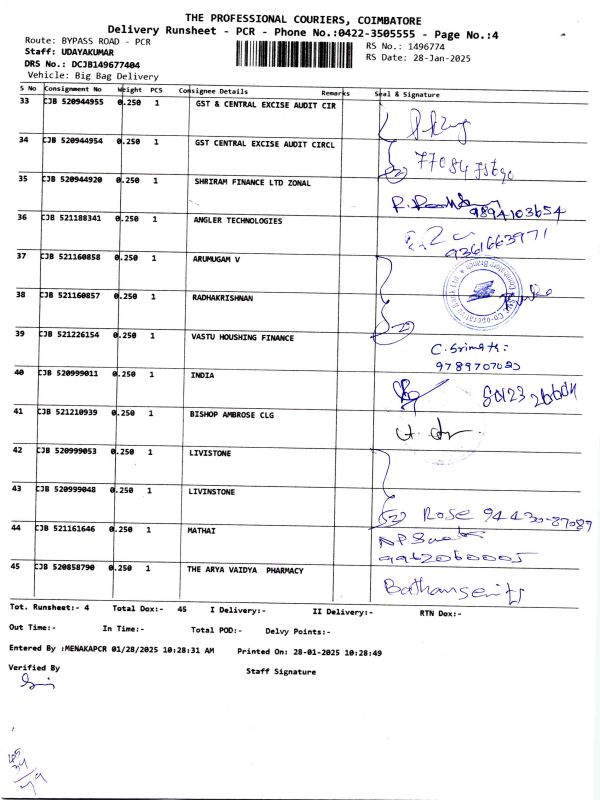 THE PROFESSIONAL COURIERS, COIMBATORE
Delivery Runsheet - PCR - Phone No.:0422-3505555 - Page No.:4
Route: BYPASS ROAD - PCR
RS No.: 1496774
Staff: UDAYAKUMAR
RS Date: 28-Jan-2025
DRS No.: DCJB149677404
Vehicle: Big Bag Delivery
S No Consignment No Weight PCS Consignee Details Remarks Seal & Signature
33 CJB 520944955 0.250 1 GST & CENTRAL EXCISE AUDIT CIR
34 CJB 520944954 0.250 1 GST CENTRAL EXCISE AUDIT CIRCL
35 CJB 520944920 0.250 1 SHRIRAM FINANCE LTD ZONAL
9894103654
36 CJB 521188341 0.250 1 ANGLER TECHNOLOGIES
9361663971
37 CJB 521160858 0.250 1 ARUMUGAM V
38 CJB 521160857 0.250 1 RADHAKRISHNAN
39 CJB 521226154 0.250 1 VASTU HOUSHING FINANCE
C. Srimathi:
40 CJB 520999011 0.250 1 INDIA
41 CJB 521210939 0.250 1 BISHOP AMBROSE CLG
42 CJB 520999053 0.250 1 LIVISTONE
43 CJB 520999048 0.250 1 LIVINSTONE
Rose 94430-87089
44 CJB 521161646 0.250 1 MATHAI
9962060005
45 CJB 520858790 0.250 1 THE ARYA VAIDYA PHARMACY
Tot. Runsheet:- 4 Total Dox:- 45 I Delivery:- II Delivery:- RTN Dox:-
Out Time:- In Time:- Total POD:- Delvy Points:-
Entered By :MENAKAPCR 01/28/2025 10:28:31 AM Printed On: 28-01-2025 10:28:49
Verified By Staff Signature